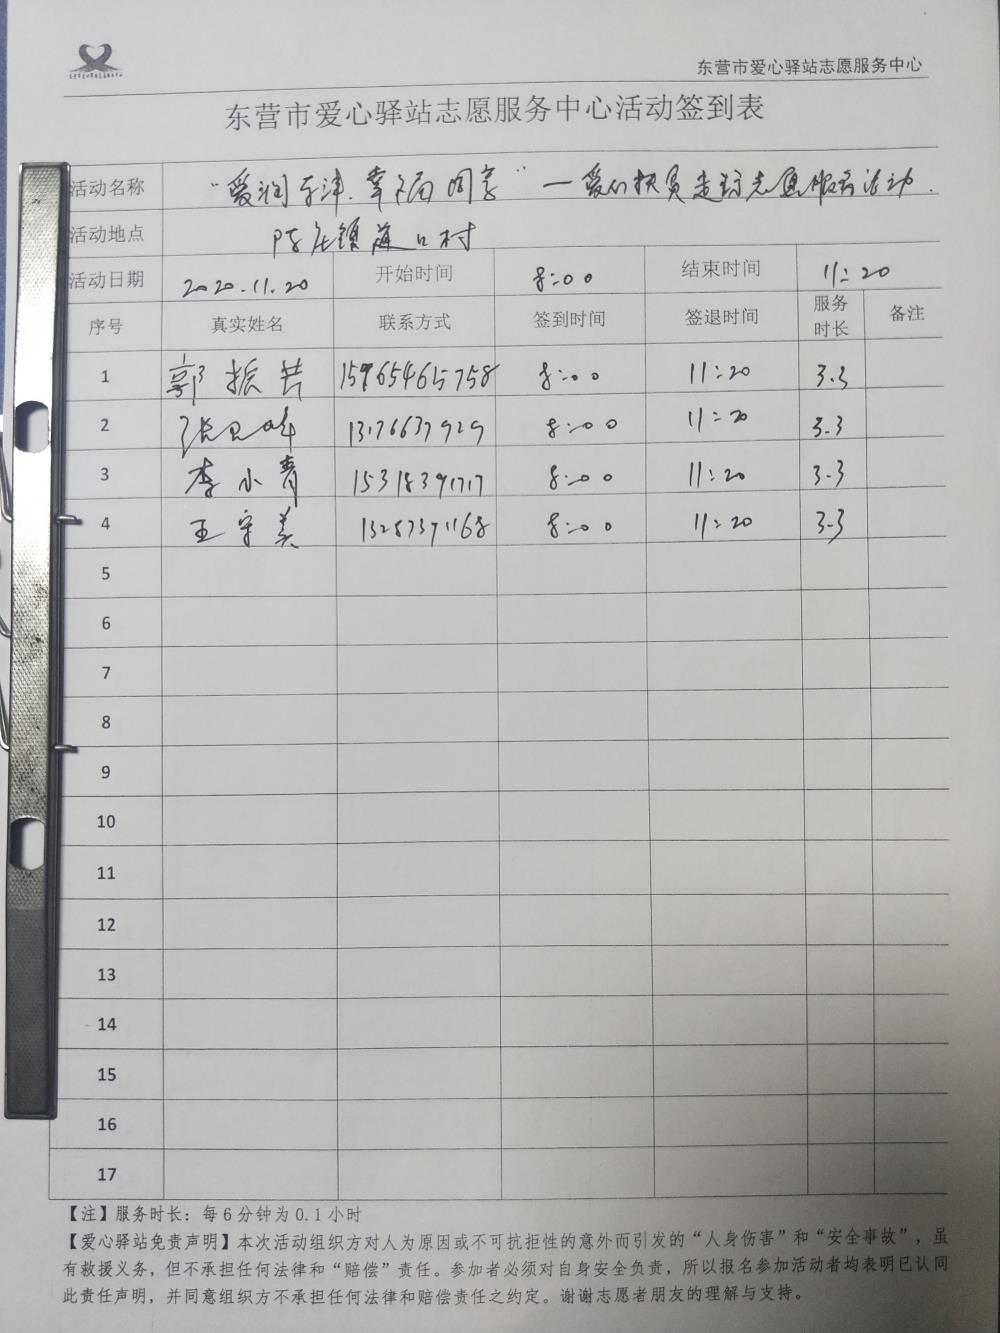 东营市爱心驿站志愿服务中心
东营市爱心驿站志愿服务中心活动签到表
活动名称 “爱润利津.幸福同享”—爱心扶贫走访志愿服务活动.
活动地点 陈庄镇 口村
活动日期 2020.11.20 开始时间 8:00 结束时间 11:20
序号 真实姓名 联系方式 签到时间 签退时间 服务时长 备注
1 郭振 8:00 11:20 3.3
2 张 13176637929 8:00 11:20 3.3
3 李小青 15318391717 8:00 11:20 3.3
4 王守美 13287371168 8:00 11:20 3.3
5
6
7
8
9
10
11
12
13
14
15
16
17
【注】服务时长：每6分钟为0.1小时
【爱心驿站免责声明】本次活动组织方对人为原因或不可抗拒性的意外而引发的“人身伤害”和“安全事故”，虽
有救援义务，但不承担任何法律和“赔偿”责任。参加者必须对自身安全负责，所以报名参加活动者均表明已认同
此责任声明，并同意组织方不承担任何法律和赔偿责任之约定。谢谢志愿者朋友的理解与支持。